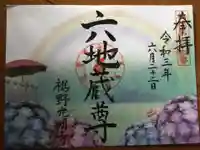 奉拝
令和三年
六月二十二日
六地蔵尊
裾野光明寺